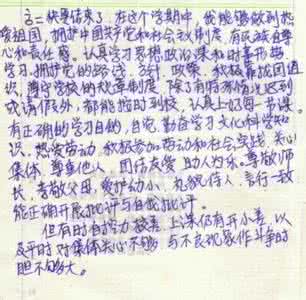 高二快要结束了，在这个学期中，我能够做到热
爱祖国，拥护中国共产党和社会主义制度，有民族自尊
心和责任感。认真学习思想政治课和时事形势
学习，拥护党的路线、方针、政策，积极靠拢团组
织，遵守学校的规章制度，除了有特殊情况迟到
或请假外，都能按时到校，认真上好每一节课。
有正确的学习目的，自觉、勤奋学习文化科学知
识，热爱劳动，积极参加劳动和社会实践，关心
集体，尊重他人，团结友爱，助人为乐。尊敬师
长，孝敬父母，爱护幼小，礼貌待人，言行一致
能正确开展批评与自我批评。
但有时自控力较差，上课仍有开小差，以
及平时对集体关心不够，与不良现象作斗争的
胆不够大。